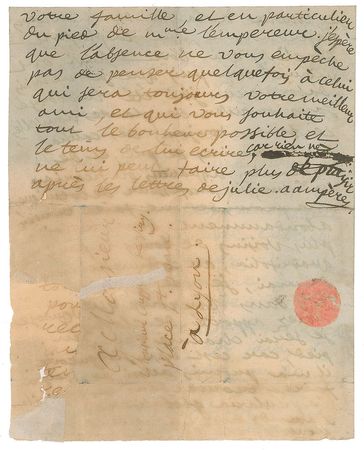 votre famille, et en particulier
du pied de mme lempereur. jespère
que labsence ne vous empeche
pas de penser quelquefois à celui
qui sera toujours votre meilleur
ami, et qui vous souhaite
tout le bonheur possible et
le tems de lui ecrire, car rien ne
ne lui peut faire plus de plaisir
après les lettres de julie. a ampère
A Monsieur
place
à Lyon.